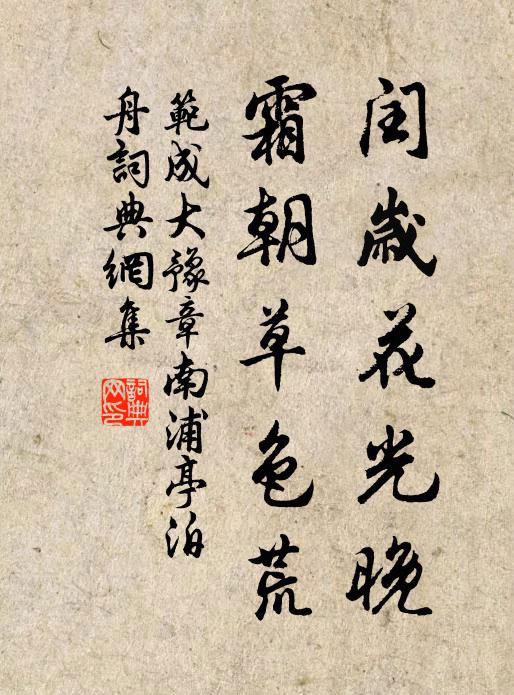 闰歳花光晚
霜朝草色荒
範成大豫章南浦亭泊
舟詞典網集
詞典
网印